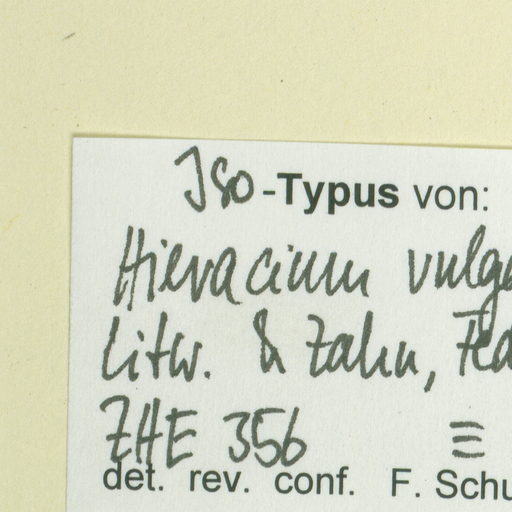 Iso-Typus von:
Hieracium vulga
Litw. & Zahn, Fed
ZHE 356 ≡
det. rev. conf. F. Schu